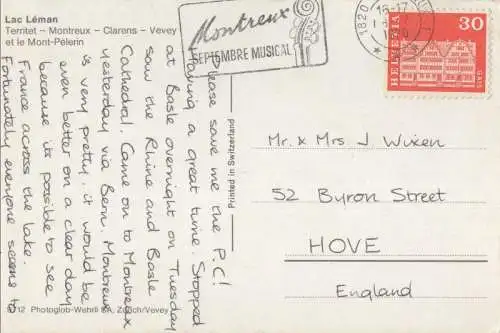 Lac Léman
Territet – Montreux – Clarens – Vevey
et le Mont-Pèlerin
Montreux
SEPTEMBRE MUSICAL
1820
16-17
HELVETIA
30
GAIS
Please save me the P.C!
Having a great time. Stopped
at Basle overnight on Tuesday
saw the Rhine and Basle
Cathedral. Came on to Montreux
yesterday via Bern. Montreux
is very pretty. it would be
even better on a clear day
because its possible to see
France across the lake.
Fortunately everyone seems to
Printed in Switzerland
Mr. & Mrs J Wixen
52 Byron Street
HOVE
England
12 Photoglob-Wehrli SA, Zürich/Vevey